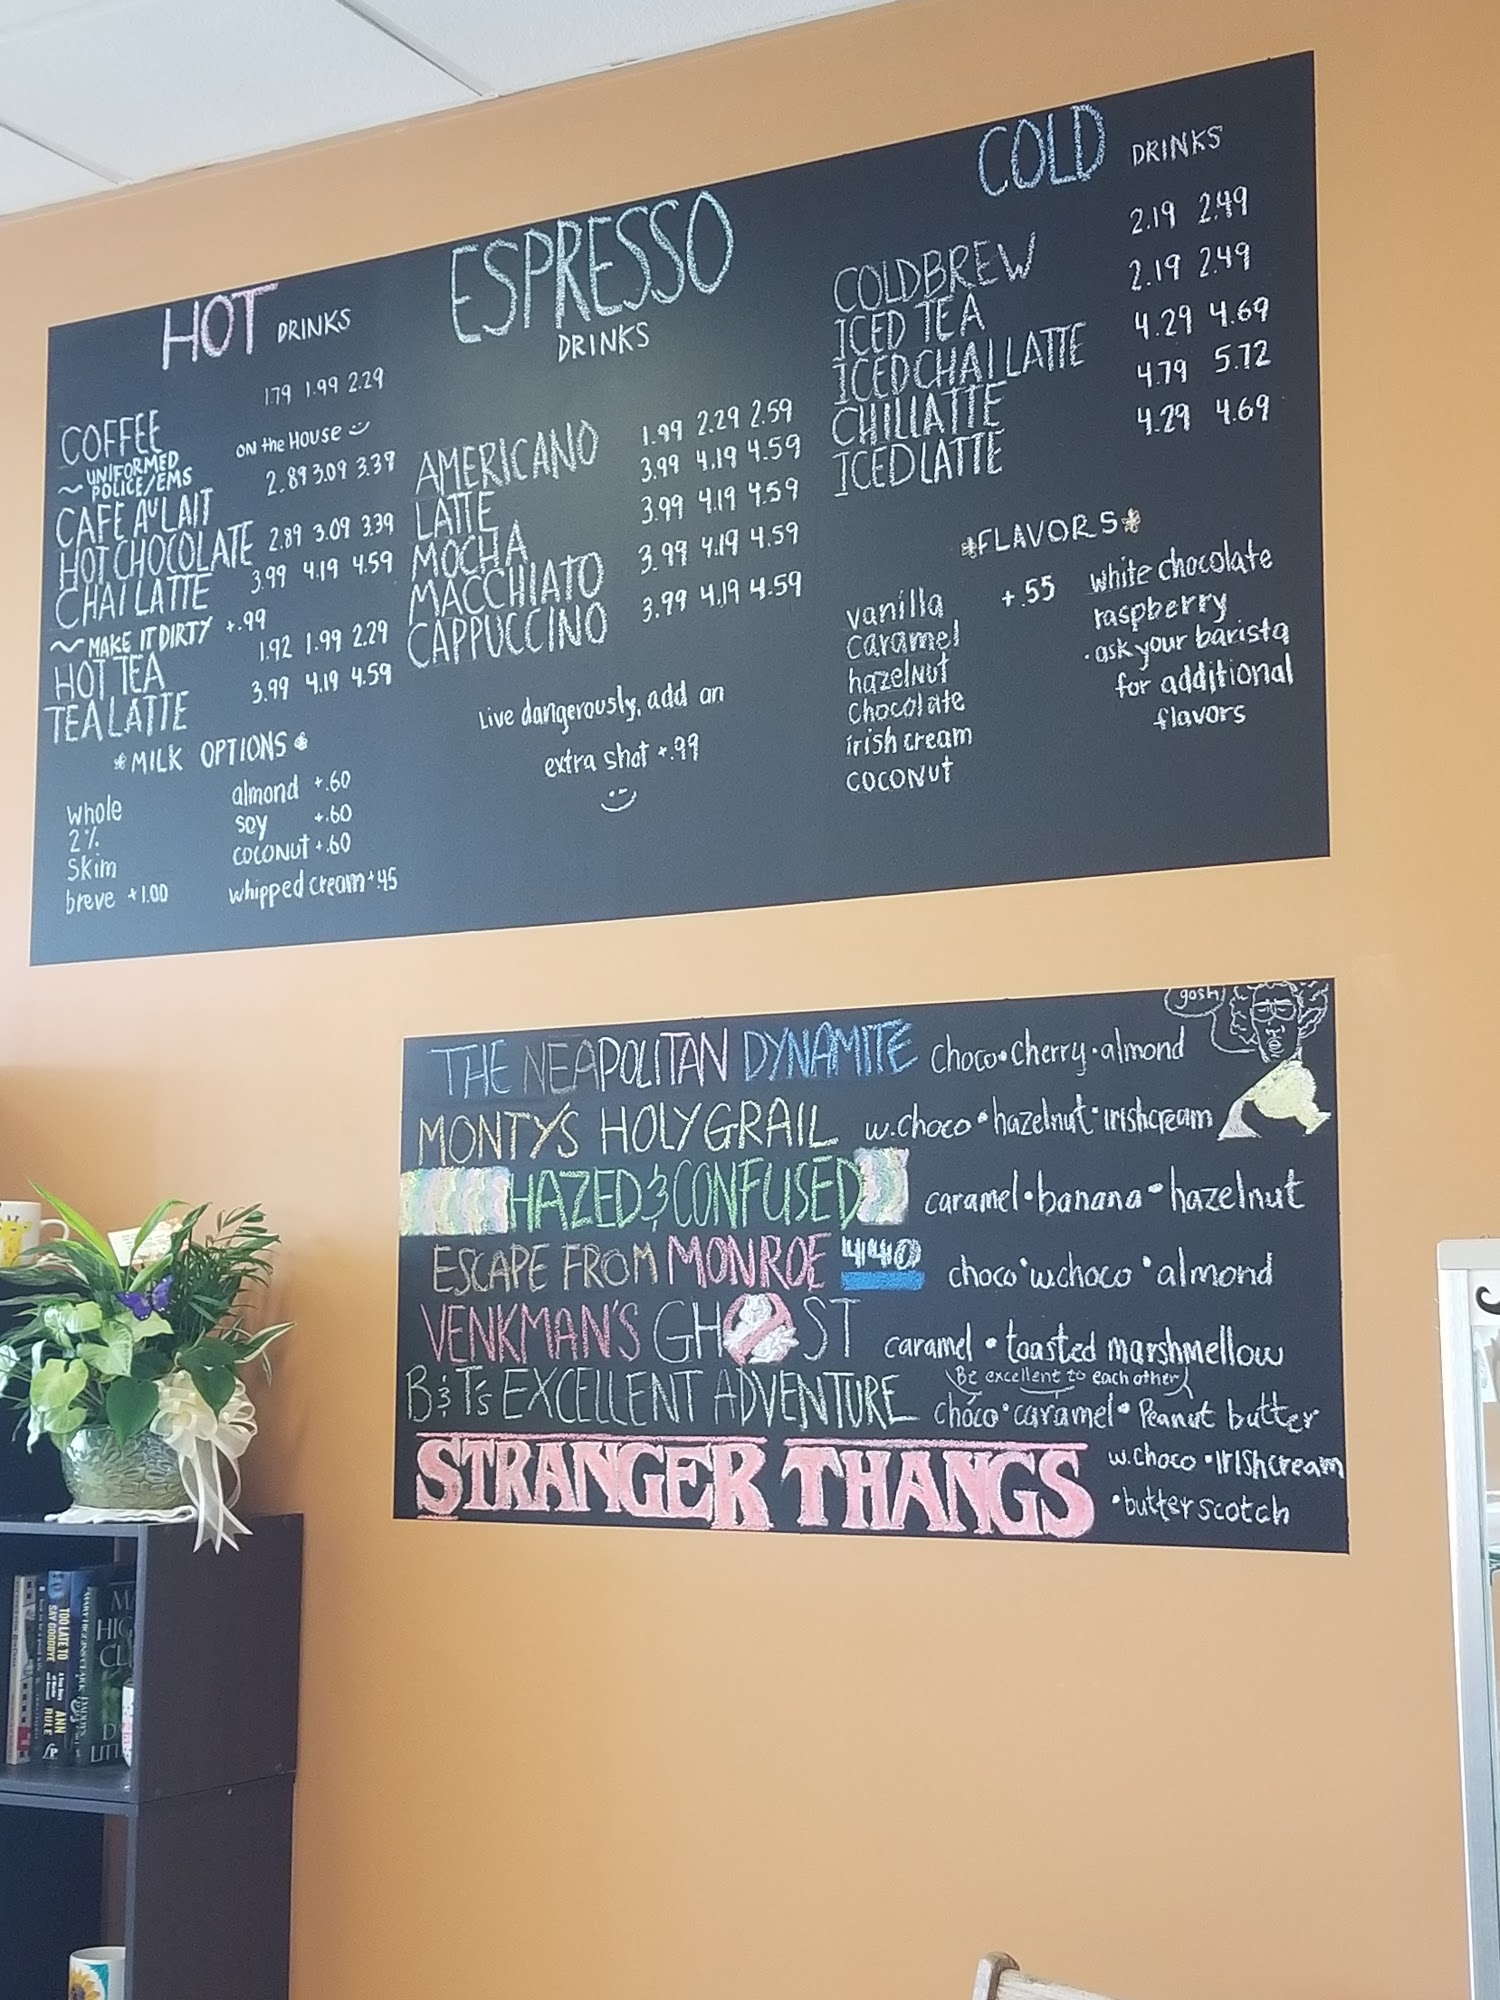 HOT DRINKS
COFFEE 1.79 1.99 2.29
~ UNIFORMED POLICE/EMS ON the HOUSE
CAFE AU LAIT 2.89 3.09 3.39
HOT CHOCOLATE 2.89 3.09 3.39
CHAI LATTE 3.99 4.19 4.59
~ MAKE IT DIRTY +.99
HOT TEA 1.92 1.99 2.29
TEA LATTE 3.99 4.19 4.59
*MILK OPTIONS*
whole
2%
Skim
breve +1.00
almond +.60
soy +.60
coconut +.60
whipped cream +.45
ESPRESSO
DRINKS
AMERICANO 1.99 2.29 2.59
LATTE 3.99 4.19 4.59
MOCHA 3.99 4.19 4.59
MACCHIATO 3.99 4.19 4.59
CAPPUCCINO 3.99 4.19 4.59
Live dangerously, add an
extra shot +.99
COLD DRINKS
COLDBREW 2.19 2.49
ICED TEA 2.19 2.49
ICED CHAI LATTE 4.29 4.69
CHILLATTE 4.79 5.72
ICED LATTE 4.29 4.69
*FLAVORS*
+.55
vanilla
caramel
hazelnut
chocolate
irish cream
coconut
white chocolate
raspberry
. ask your barista
for additional
flavors
gosh!
THE NEAPOLITAN DYNAMITE choco • cherry • almond
MONTY'S HOLY GRAIL w.choco • hazelnut • irishcream
HAZED & CONFUSED caramel • banana • hazelnut
ESCAPE FROM MONROE 440 choco • w.choco • almond
VENKMAN'S GHOST caramel • toasted marshmellow
Be excellent to each other
B&T's EXCELLENT ADVENTURE choco • caramel • Peanut butter
STRANGER THANGS w.choco • irishcream
• butterscotch
TOO LATE TO
SAY GOODBYE
ANN
RULE